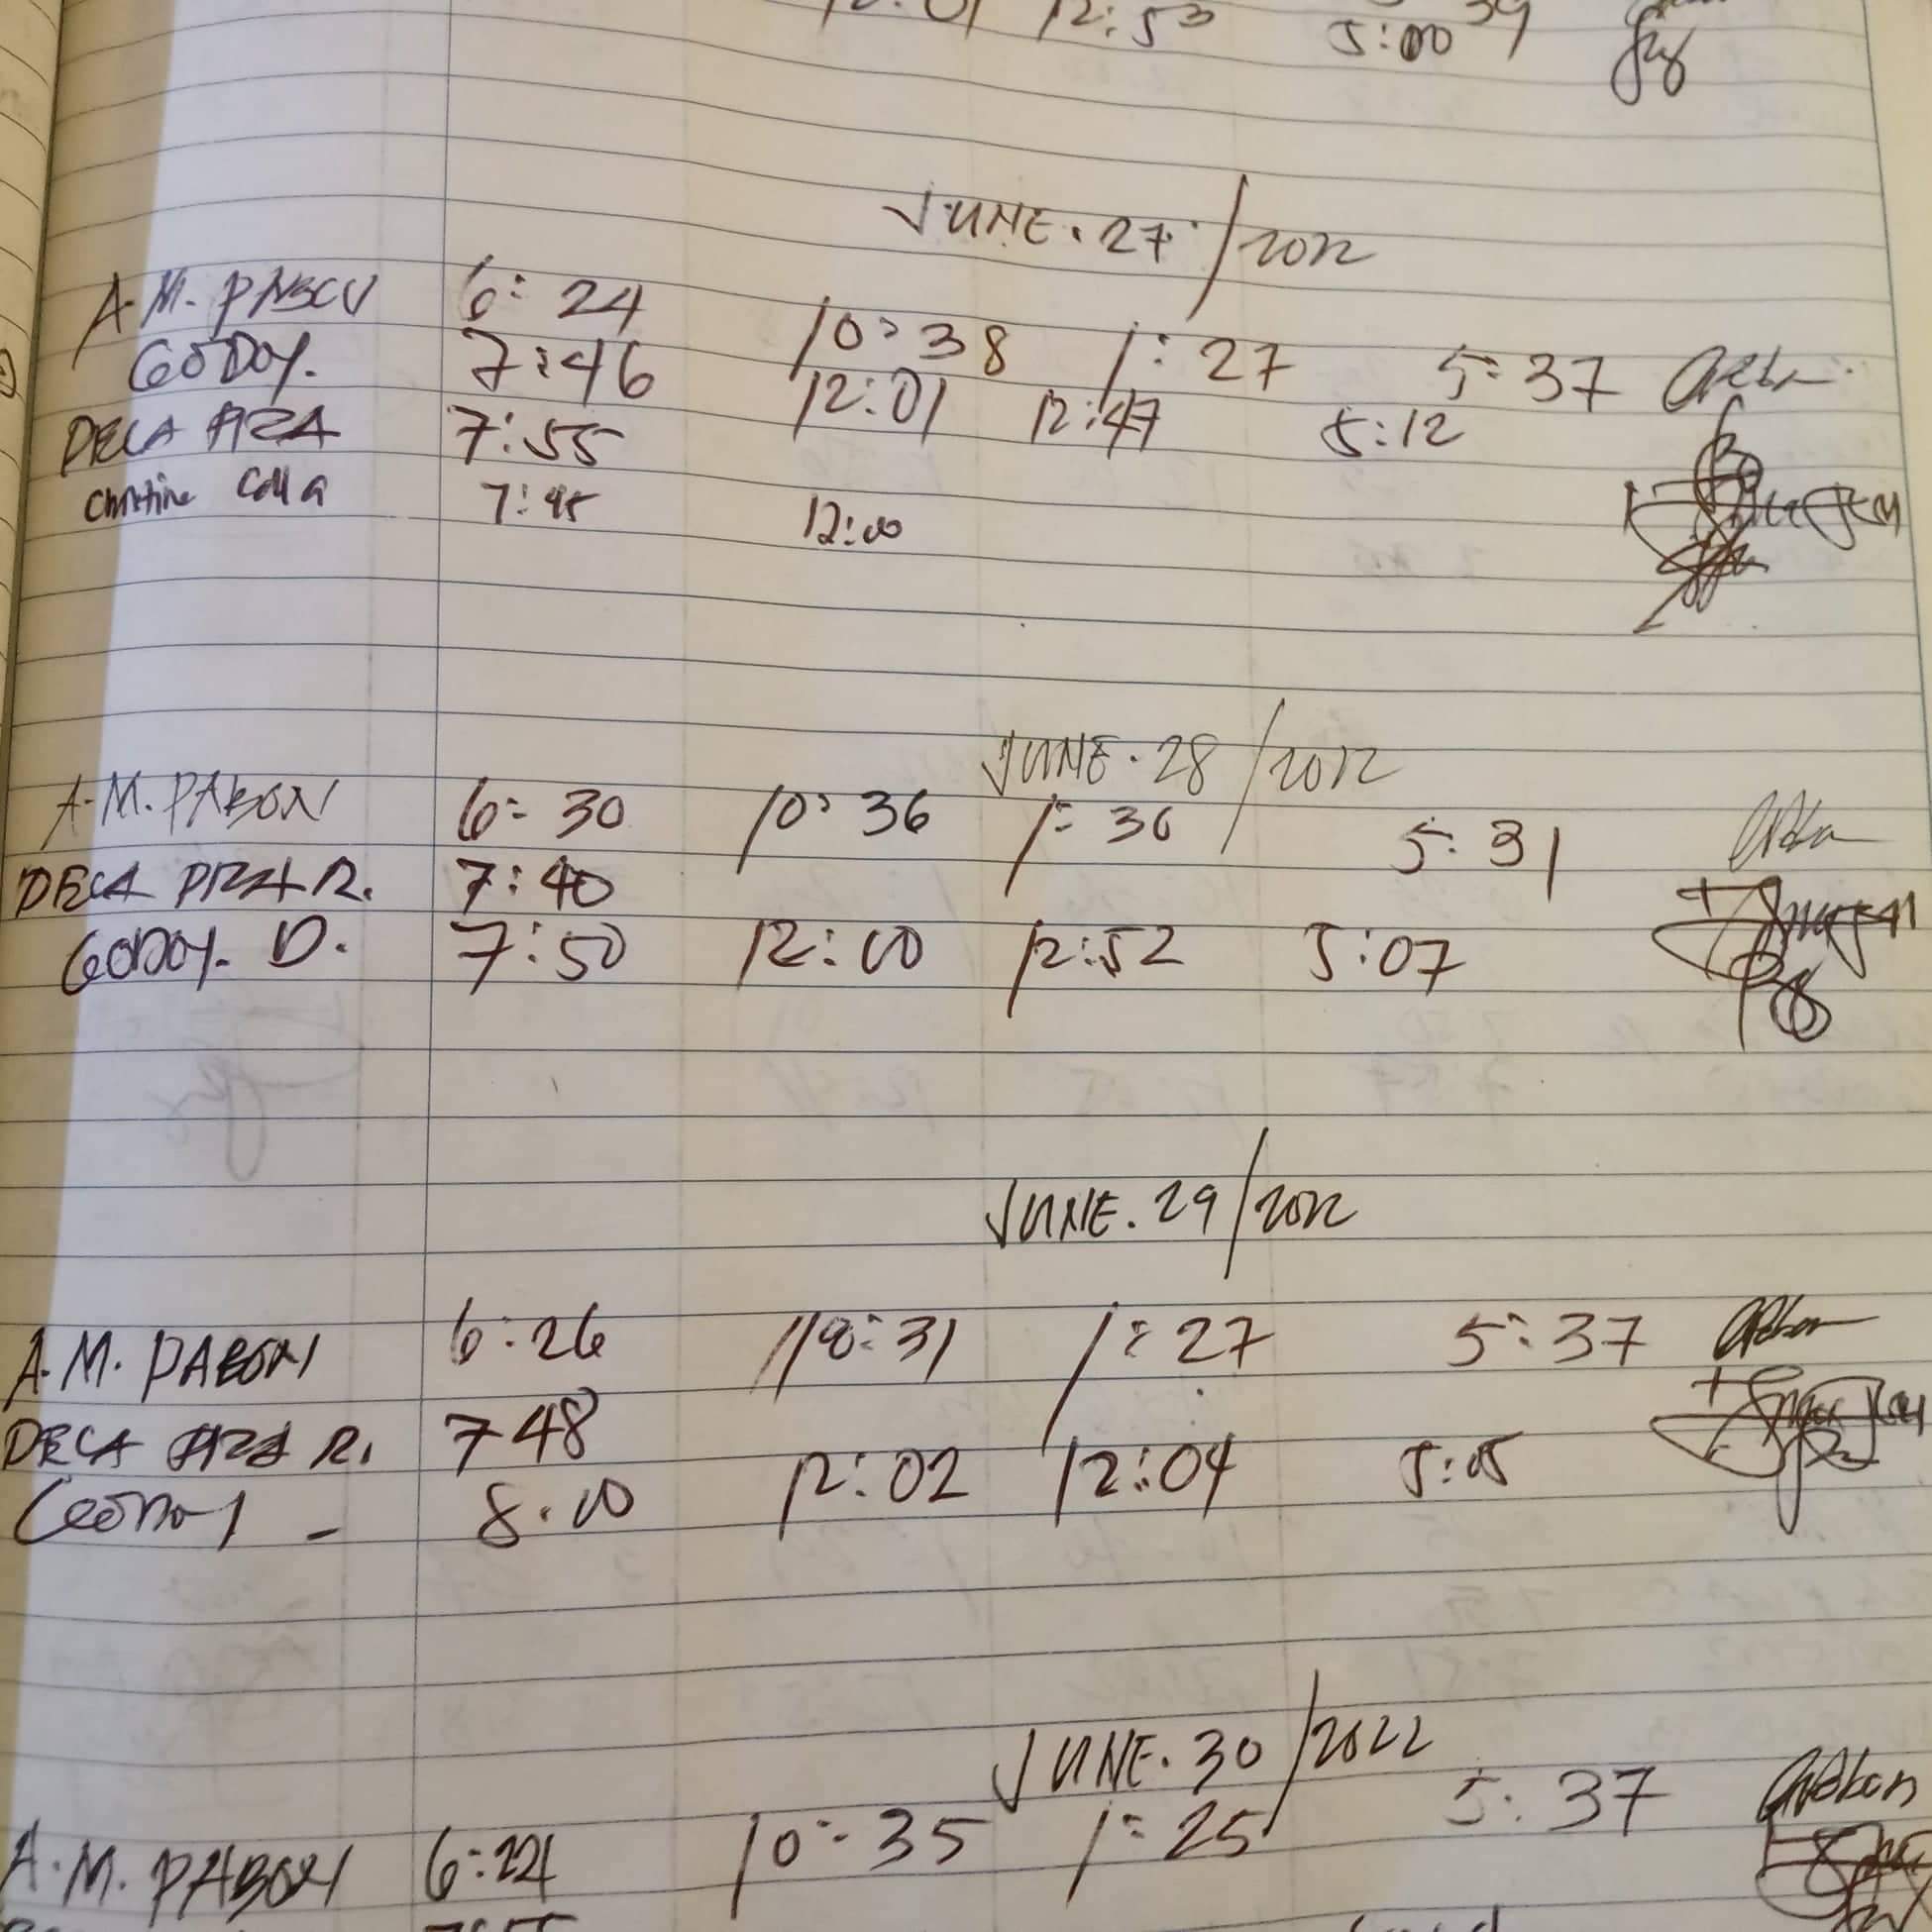 12:01 12:53 5:00
JUNE. 27/2022
A.M. PABON 6:24 10:38 1:27 5:37
GODOY. 7:46 12:01 12:47 5:12
DECA PIZA 7:55
Christine Colla 7:45 12:00
JUNE. 28/2022
A.M. PABON 6:30 10:36 1:30 5:31
DECA PIZA R. 7:40
GODOY. D. 7:50 12:00 12:52 5:07
JUNE. 29/2022
A.M. PABON 6:26 10:31 1:27 5:37
DECA PIZA R. 7 48
8.00 12:02 12:04 5:05
JUNE. 30/2022
A.M. PABON 6:24 10:35 1:25 5:37